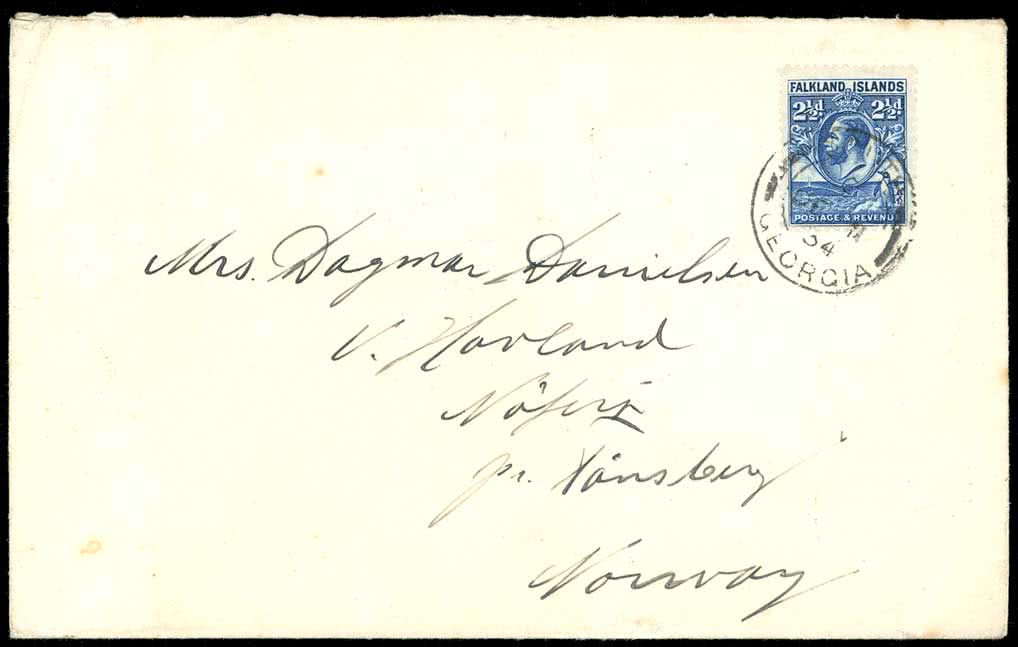 FALKLAND ISLANDS
2½d. 2½d.
POSTAGE & REVENUE
34
GEORGIA
Mrs. Dagmar Danielsen
V. Havland
pr. Tönsberg
Norway